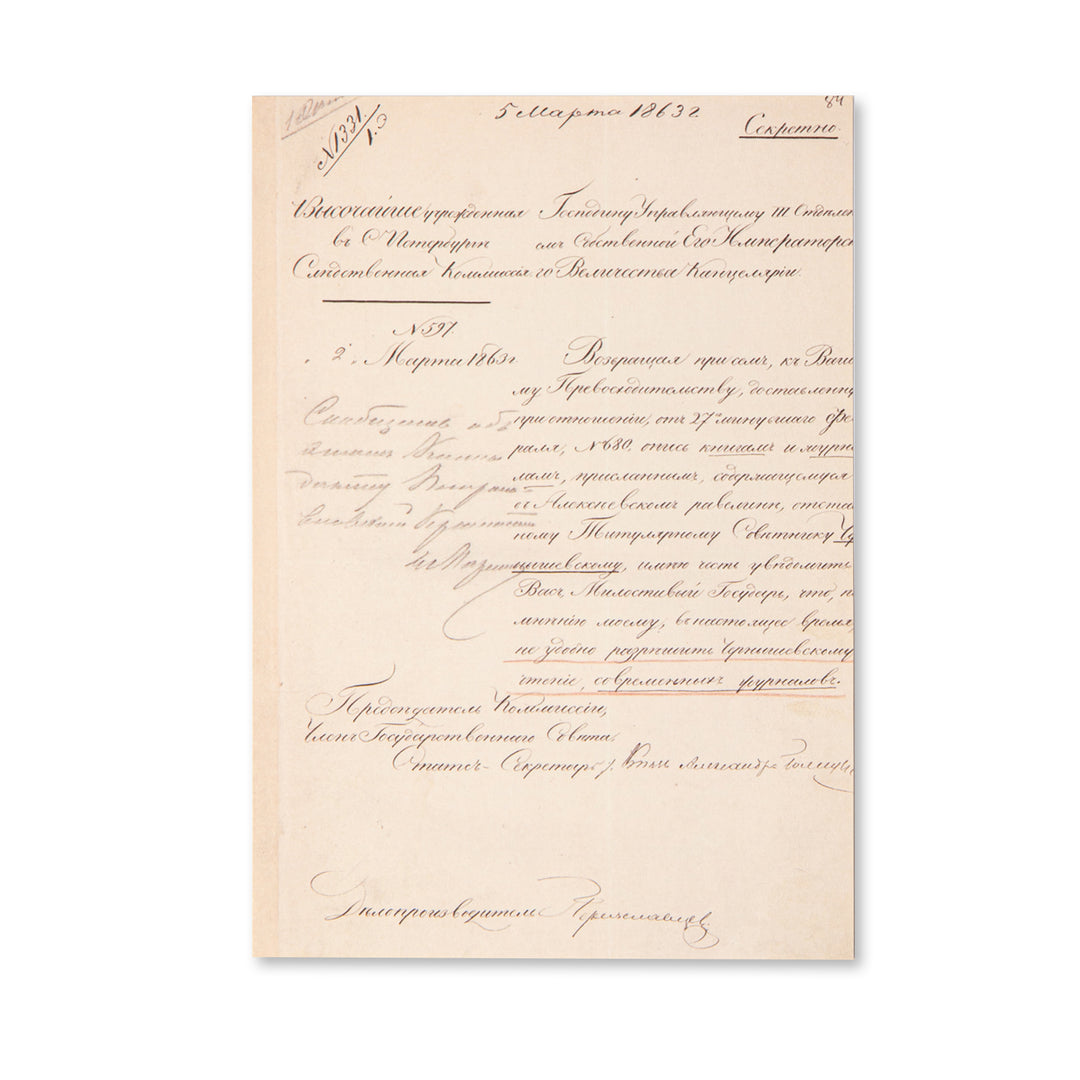 84
5 Марта 1863 г
Секретно.
№ 1331.
Высочайше учрежденная
въ С Петербургѣ
Слѣдственная Коммисія
№ 597.
"2" Марта 1863 г
Сообщить объ
Господину Управляющему III Отдѣлен
емъ Собственной Его Императорск
го Величества Канцеляріи.
Возвращая при семъ, къ Ваше
му Превосходительству, доставленную
при отношеніи, отъ 27 минувшаго Фе
раля, № 680, опись книгамъ и журна
ламъ, присланнымъ, содержащемуся
въ Алексѣевскомъ равелинѣ, отстав
ному Титулярному Совѣтнику Чер
нышевскому, имѣю честь увѣдомить
Васъ, Милостивый Государь, что, п
мнѣнію моему, въ настоящее время,
не удобно разрѣшить Чернышевскому
чтеніе, современныхъ журналовъ.
Предсѣдатель Коммиссіи,
Членъ Государственнаго Совѣта,
Статсъ-Секретарь, Князь Александръ Голицынъ
Дѣлопроизводитель